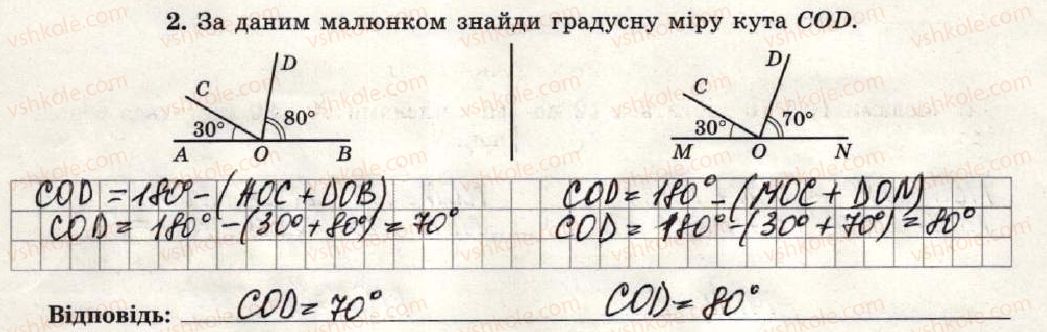 2. За даним малюнком знайди градусну міру кута COD.
C D 30° 80° A O B
C D 30° 70° M O N
COD = 180° - (AOC + DOB)
COD = 180° - (30° + 80°) = 70°
COD = 180° - (MOC + DON)
COD = 180° - (30° + 70°) = 80°
Відповідь: COD = 70° COD = 80°
vshkole.com